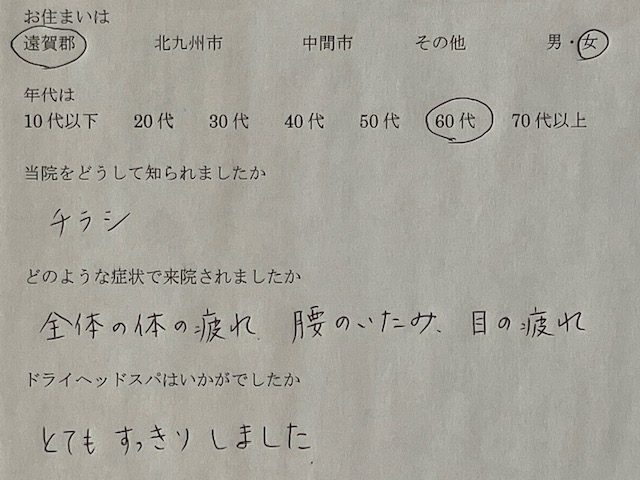 お住まいは
遠賀郡 北九州市 中間市 その他 男・女
年代は
10代以下 20代 30代 40代 50代 60代 70代以上
当院をどうして知られましたか
チラシ
どのような症状で来院されましたか
全体の体の疲れ、腰のいたみ、目の疲れ
ドライヘッドスパはいかがでしたか
とてもすっきりしました。